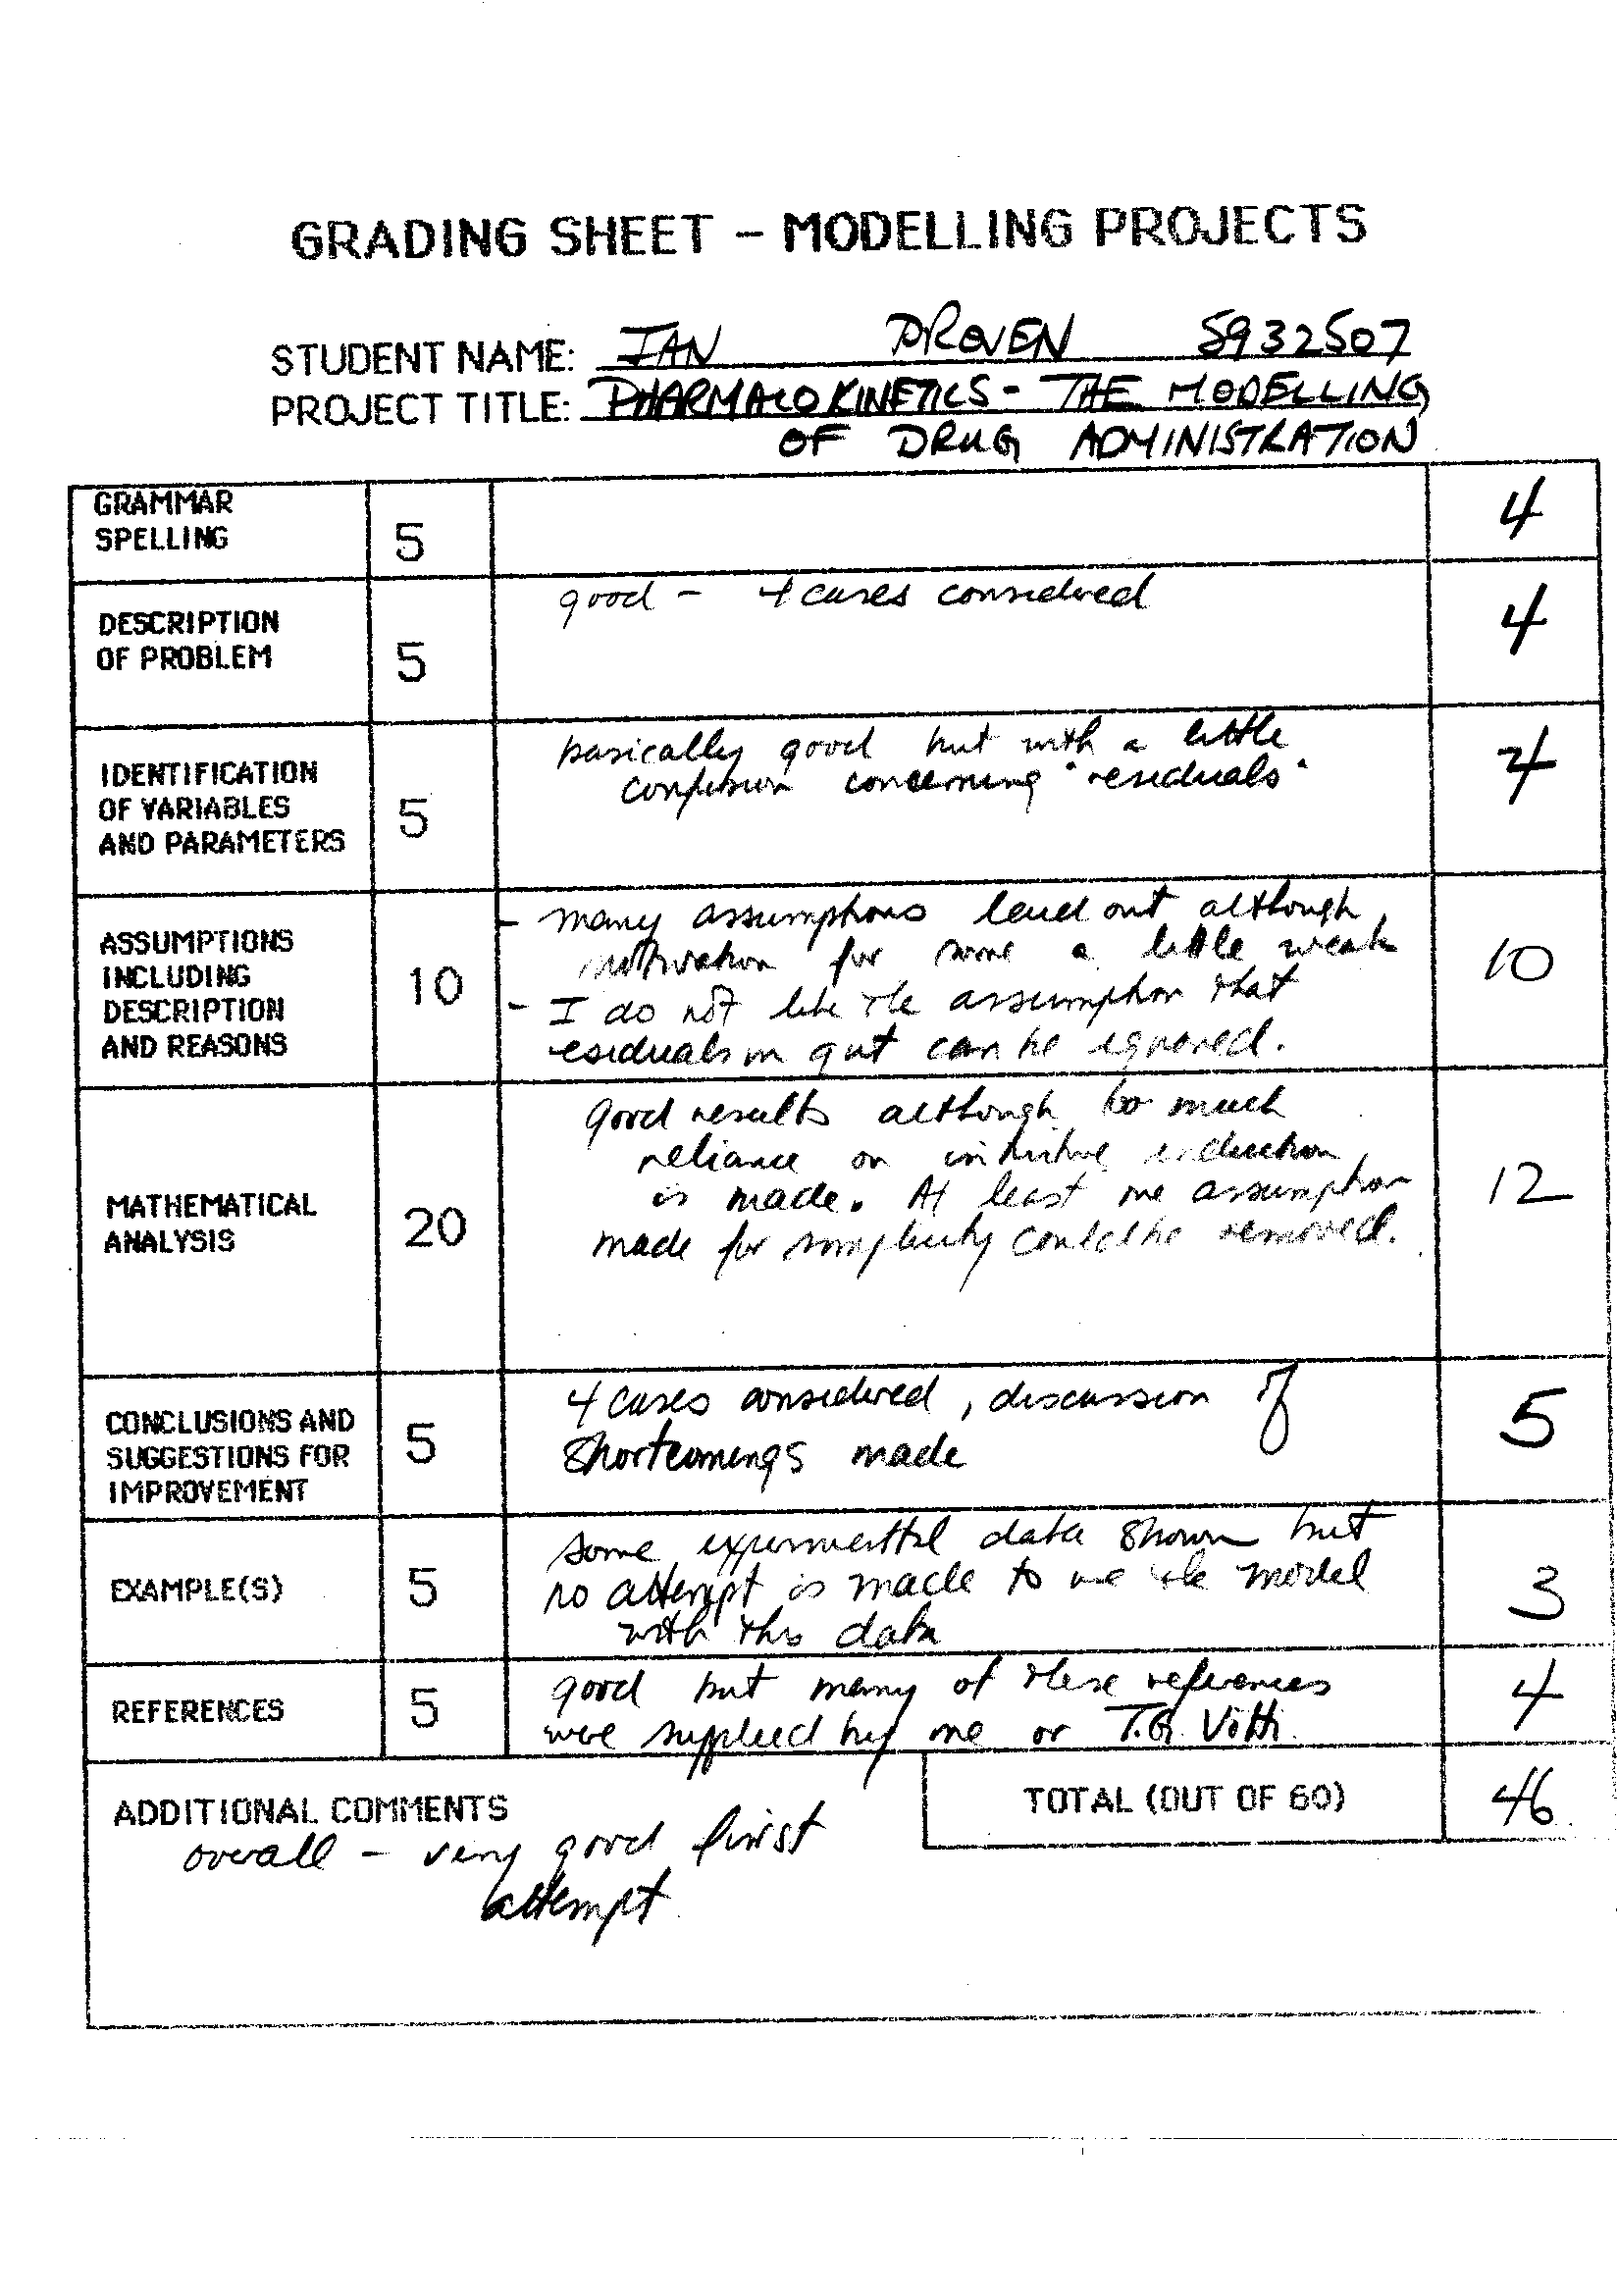 GRADING SHEET - MODELLING PROJECTS
STUDENT NAME: IAN PROVEN 5932507
PROJECT TITLE: PHARMACOKINETICS - THE MODELLING
OF DRUG ADMINISTRATION
GRAMMAR
SPELLING
5
4
DESCRIPTION
OF PROBLEM
5
good - 4 cases considered
4
IDENTIFICATION
OF VARIABLES
AND PARAMETERS
5
basically good but with a little
confusion concerning "residuals"
4
ASSUMPTIONS
INCLUDING
DESCRIPTION
AND REASONS
10
- many assumptions laid out although
motivation for some a little weak
- I do not like the assumption that
residuals in gut can be ignored.
10
MATHEMATICAL
ANALYSIS
20
good results although too much
reliance on intuitive induction
is made. At least one assumption
made for simplicity could be removed.
12
CONCLUSIONS AND
SUGGESTIONS FOR
IMPROVEMENT
5
4 cases considered, discussion of
shortcomings made
5
EXAMPLE(S)
5
some experimental data shown but
no attempt is made to use the model
with this data
3
REFERENCES
5
good but many of these references
were supplied by me or T.G.
4
ADDITIONAL COMMENTS
overall - very good first
attempt
TOTAL (OUT OF 60)
46